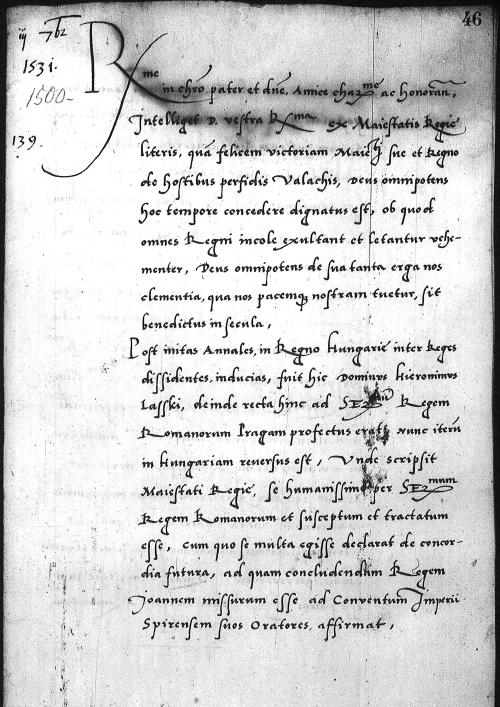 46
iij 7bz
1531.
1500-
139.
Rme
in chro pater et dne, Amice charme ac honoran,
Intelliget D. vestra Rxma ex Maiestatis Regie
literis, quā felicem victoriam Maieti sue et Regno
de hostibus perfidis Valachis, Deus omnipotens
hoc tempore concedere dignatus est, ob quod
omnes Regni incole exultant et letantur vehe-
menter, Deus omnipotens de sua tanta erga nos
clementia, qua nos pacemq nostram tuetur, sit
benedictus in secula,
Post initas Annales, in Regno Hungarie inter Reges
dissidentes, inducias, fuit hic Dominus Hieronimus
Lasski, deinde recta hinc ad Regem
Romanorum Pragam profectus erat, nunc iterū
in Hungariam reversus est, Unde scripsit
Maiestati Regie, se humanissime per Sermum
Regem Romanorum et susceptum et tractatum
esse, cum quo se multa egisse declarat de concor-
dia futura, ad quam concludendum Regem
Joannem missurum esse ad Conventum Imperii
Spirensem suos Oratores, affirmat,